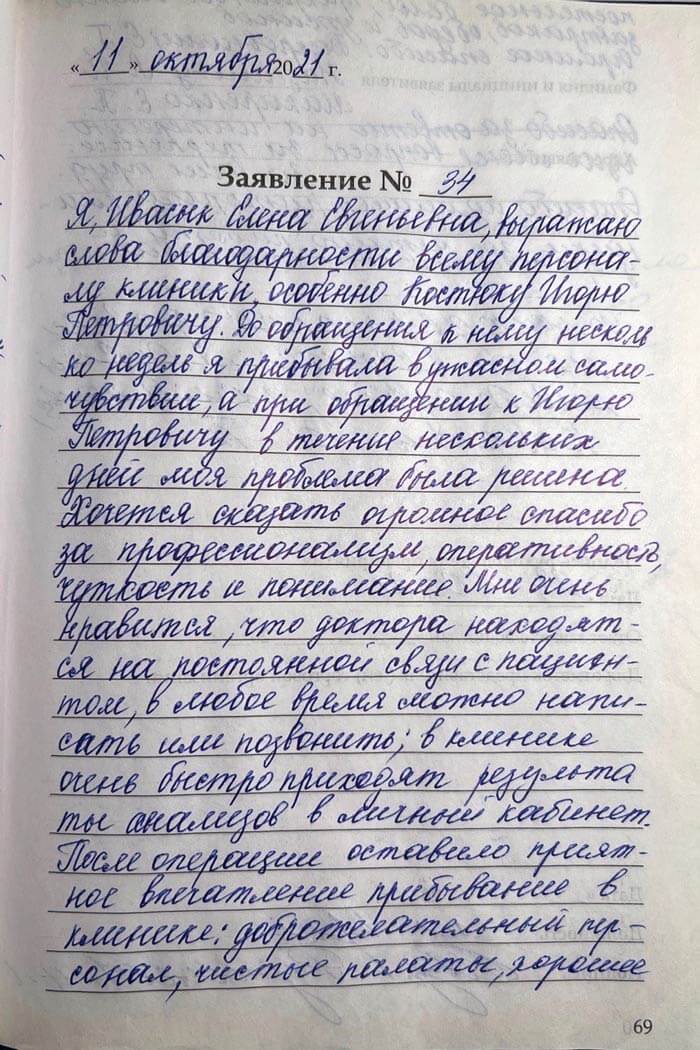 «11» октября 2021 г.
Заявление № 34
Я, Ивасык Елена Евгеньевна, выражаю
слова благодарности всему персона-
лу клиники, особенно Костюку Игорю
Петровичу. До обращения к нему несколь
ко недель я прибывала в ужасном само-
чувствии, а при обращении к Игорю
Петровичу в течение нескольких
дней моя проблема была решена.
Хочется сказать огромное спасибо
за профессионализм, оперативность,
чуткость и понимание. Мне очень
нравится, что доктора находят-
ся на постоянной связи с пациен-
том, в любое время можно напи-
сать или позвонить; в клинике
очень быстро приходят результа
ты анализов в личный кабинет.
После операции оставило прият-
ное впечатление прибывание в
клинике: доброжелательный пер-
сонал, чистые палаты, хорошее
69